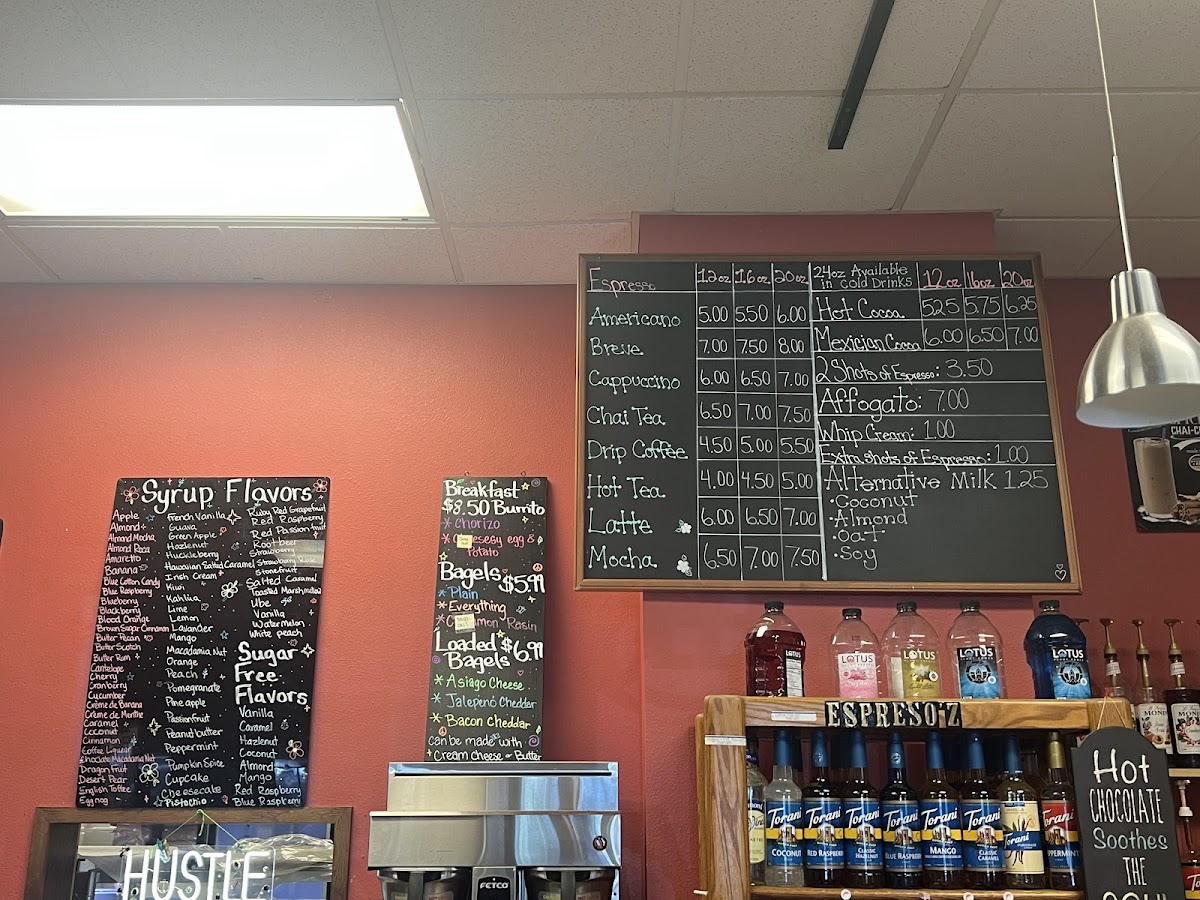 Syrup Flavors
Apple
Almond
Almond Mocha
Almond Roca
Amaretto
Banana
Blue Cotton Candy
Blue Raspberry
Blueberry
Blackberry
Blood Orange
Brown Sugar Cinnamon
Butter Pecan
Butter Scotch
Butter Rum
Cantelope
Cherry
Cranberry
Cucumber
Crème de Banana
Crème de Menthe
Caramel
Coconut
Cinnamon
Coffee Liqueur
Chocolate Macadamia Nut
Dragon Fruit
Desert Pear
English Toffee
Eggnog
French Vanilla
Guava
Green Apple
Hazlenut
Huckleberry
Hawaiian Salted Caramel
Irish Cream
Kiwi
Kahlúa
Lime
Lemon
Lavander
Mango
Macadamia Nut
Orange
Peach
Pomegranate
Pineapple
Passionfruit
Peanut butter
Peppermint
Pumpkin Spice
Cupcake
Cheesecake
Pistachio
Ruby Red Grapefruit
Red Raspberry
Red Passion fruit
Root beer
Strawberry
Strawberry Rose
Stonefruit
Salted Caramel
Toasted Marshmallow
Ube
Vanilla
Watermelon
White peach
Sugar
Free
Flavors
Vanilla
Caramel
Hazlenut
Coconut
Almond
Mango
Red Raspberry
Blue Raspberry
HUSTLE
Breakfast
$8.50 Burrito
* Chorizo
egg &
Potato
Bagels $5.99
* Plain
* Everything
Raisin
Loaded $6.99
Bagels
* Asiago Cheese
* Jalepeño Cheddar
* Bacon Cheddar
can be made with
Cream Cheese or Butter
FETCO
Espresso 12oz 16oz 20oz
Americano 5.00 5.50 6.00
Breve 7.00 7.50 8.00
Cappuccino 6.00 6.50 7.00
Chai Tea 6.50 7.00 7.50
Drip Coffee 4.50 5.00 5.50
Hot Tea 4.00 4.50 5.00
Latte 6.00 6.50 7.00
Mocha 6.50 7.00 7.50
24oz Available
in cold Drinks 12oz 16oz 20oz
Hot Cocoa 5.25 5.75 6.25
Mexician Cocoa 6.00 6.50 7.00
2 Shots of Espresso: 3.50
Affogato: 7.00
Whip Cream: 1.00
Extra shots of Espresso: 1.00
Alternative Milk 1.25
• Coconut
• Almond
• Oat
• Soy
LOTUS
LOTUS
LOTUS
LOTUS
LOTUS
ESPRESO'Z
Torani
COCONUT
Torani
RED RASPBERRY
Torani
CLASSIC
HAZELNUT
Torani
BLUE RASPBERRY
Torani
MANGO
Torani
CLASSIC
CARAMEL
Torani
Torani
PEPPERMINT
Hot
CHOCOLATE
Soothes
THE